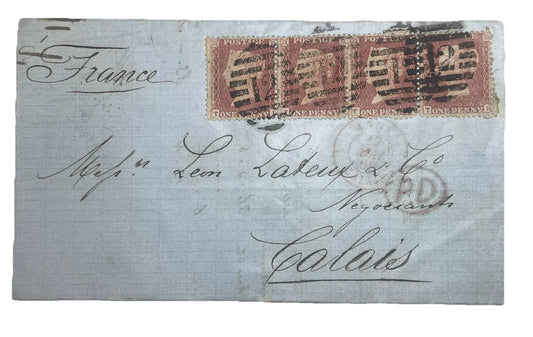 France
POSTAGE POSTAGE POSTAGE POSTAGE
12 12
ONE PENNY ONE PENNY ONE PENNY ONE PENNY
Messrs Leon Lateux & Co
Negociants
PD
Calais